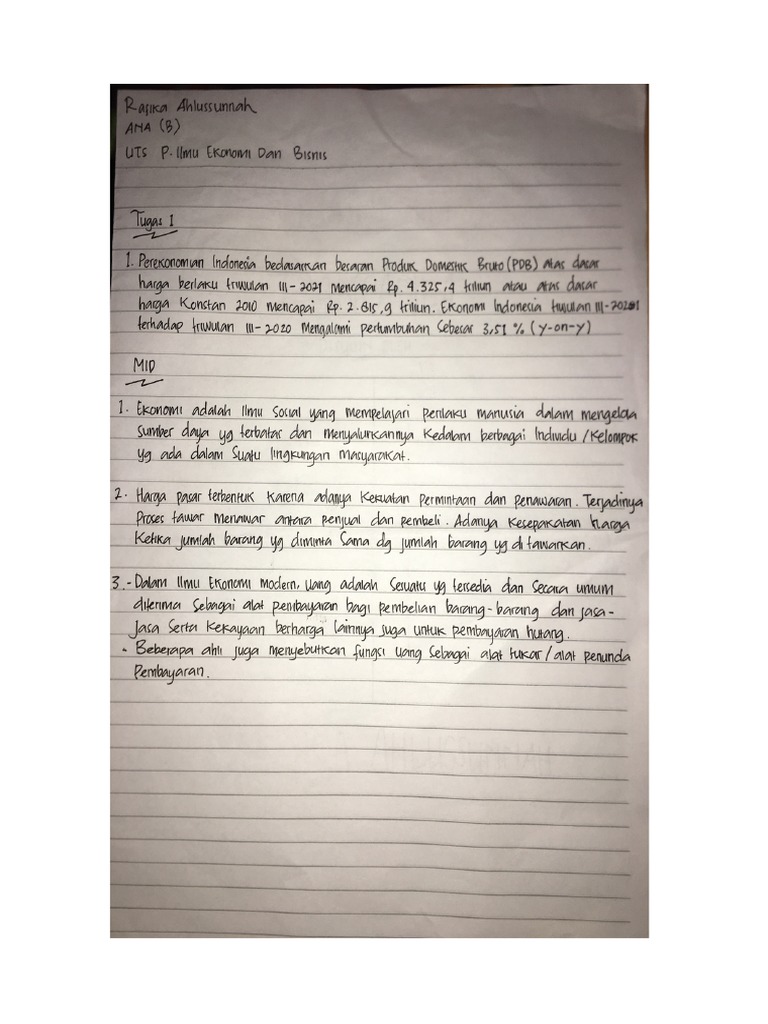 Rafika Ahlussunnah
ANA (B)
UTS P. Ilmu Ekonomi Dan Bisnis
Tugas 1
1. Perekonomian Indonesia bedasarkan besaran Produk Domestik Bruto (PDB) atas dasar
harga berlaku triwulan III-2021 mencapai Rp. 4.325,4 triliun atau atas dasar
harga Konstan 2010 mencapai Rp. 2.815,9 triliun. Ekonomi Indonesia triwulan III-2021
terhadap triwulan III-2020 Mengalami pertumbuhan Sebesar 3,51 % (y-on-y)
MID
1. Ekonomi adalah Ilmu Sosial yang mempelajari perilaku manusia dalam mengelola
Sumber daya yg terbatas dan menyalurkannya Kedalam berbagai Individu / Kelompok
yg ada dalam Suatu lingkungan masyarakat.
2. Harga pasar terbentuk Karena adanya Kekuatan Permintaan dan penawaran. Terjadinya
Proses tawar menawar antara penjual dan pembeli. Adanya Kesepakatan harga
Ketika jumlah barang yg diminta Sama dg jumlah barang yg ditawarkan.
3. - Dalam Ilmu Ekonomi modern, Uang adalah Sesuatu yg tersedia dan Secara umum
diterima Sebagai alat pembayaran bagi pembelian barang-barang dan jasa-
Jasa Serta Kekayaan berharga lainnya Juga untuk pembayaran hutang.
- Beberapa ahli juga menyebutkan fungsi uang Sebagai alat tukar / alat penunda
Pembayaran.